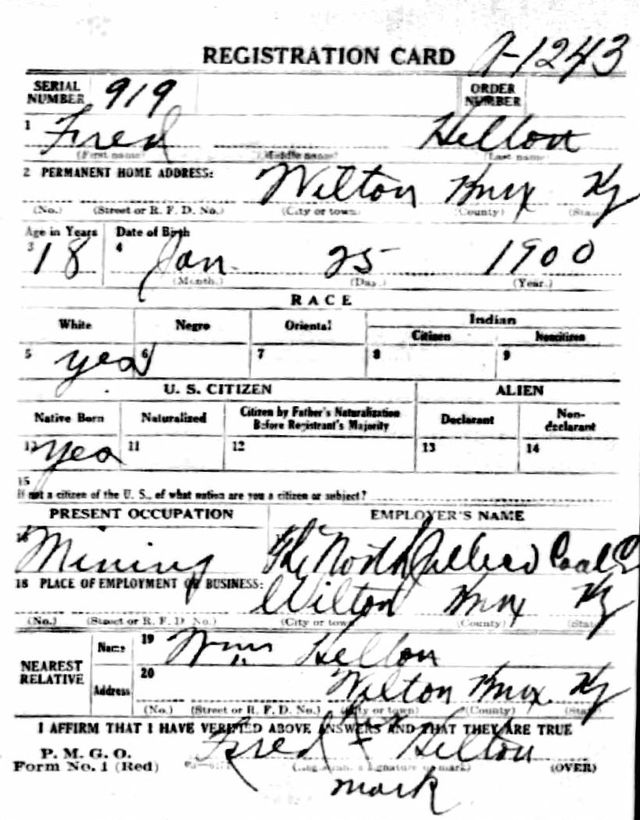 REGISTRATION CARD A-1243
SERIAL NUMBER 919 ORDER NUMBER
1 Fred Helton
(First name) (Middle name) (Last name)
2 PERMANENT HOME ADDRESS: Wilton Knox Ky
(No.) (Street or R. F. D. No.) (City or town) (County) (State)
Age in Years Date of Birth
3 18 4 Jan. 25 1900
(Month.) (Day.) (Year.)
RACE
White Negro Oriental Indian
Citizen Noncitizen
5 yes 6 7 8 9
U. S. CITIZEN ALIEN
Native Born Naturalized Citizen by Father's Naturalization Before Registrant's Majority Declarant Non-declarant
10 yes 11 12 13 14
15
If not a citizen of the U. S., of what nation are you a citizen or subject?
PRESENT OCCUPATION EMPLOYER'S NAME
16 Mining The North Jellico Coal Co
18 PLACE OF EMPLOYMENT OR BUSINESS: Wilton Knox Ky
(No.) (Street or R. F. D. No.) (City or town) (County) (State)
NEAREST RELATIVE Name 19 Wm Helton
Address 20 Wilton Knox Ky
(No.) (Street or R. F. D. No.) (City or town) (County) (State)
I AFFIRM THAT I HAVE VERIFIED ABOVE ANSWERS AND THAT THEY ARE TRUE
his
P. M. G. O. Fred + Helton
Form No. 1 (Red) (Registrant's signature or mark) (OVER)
mark